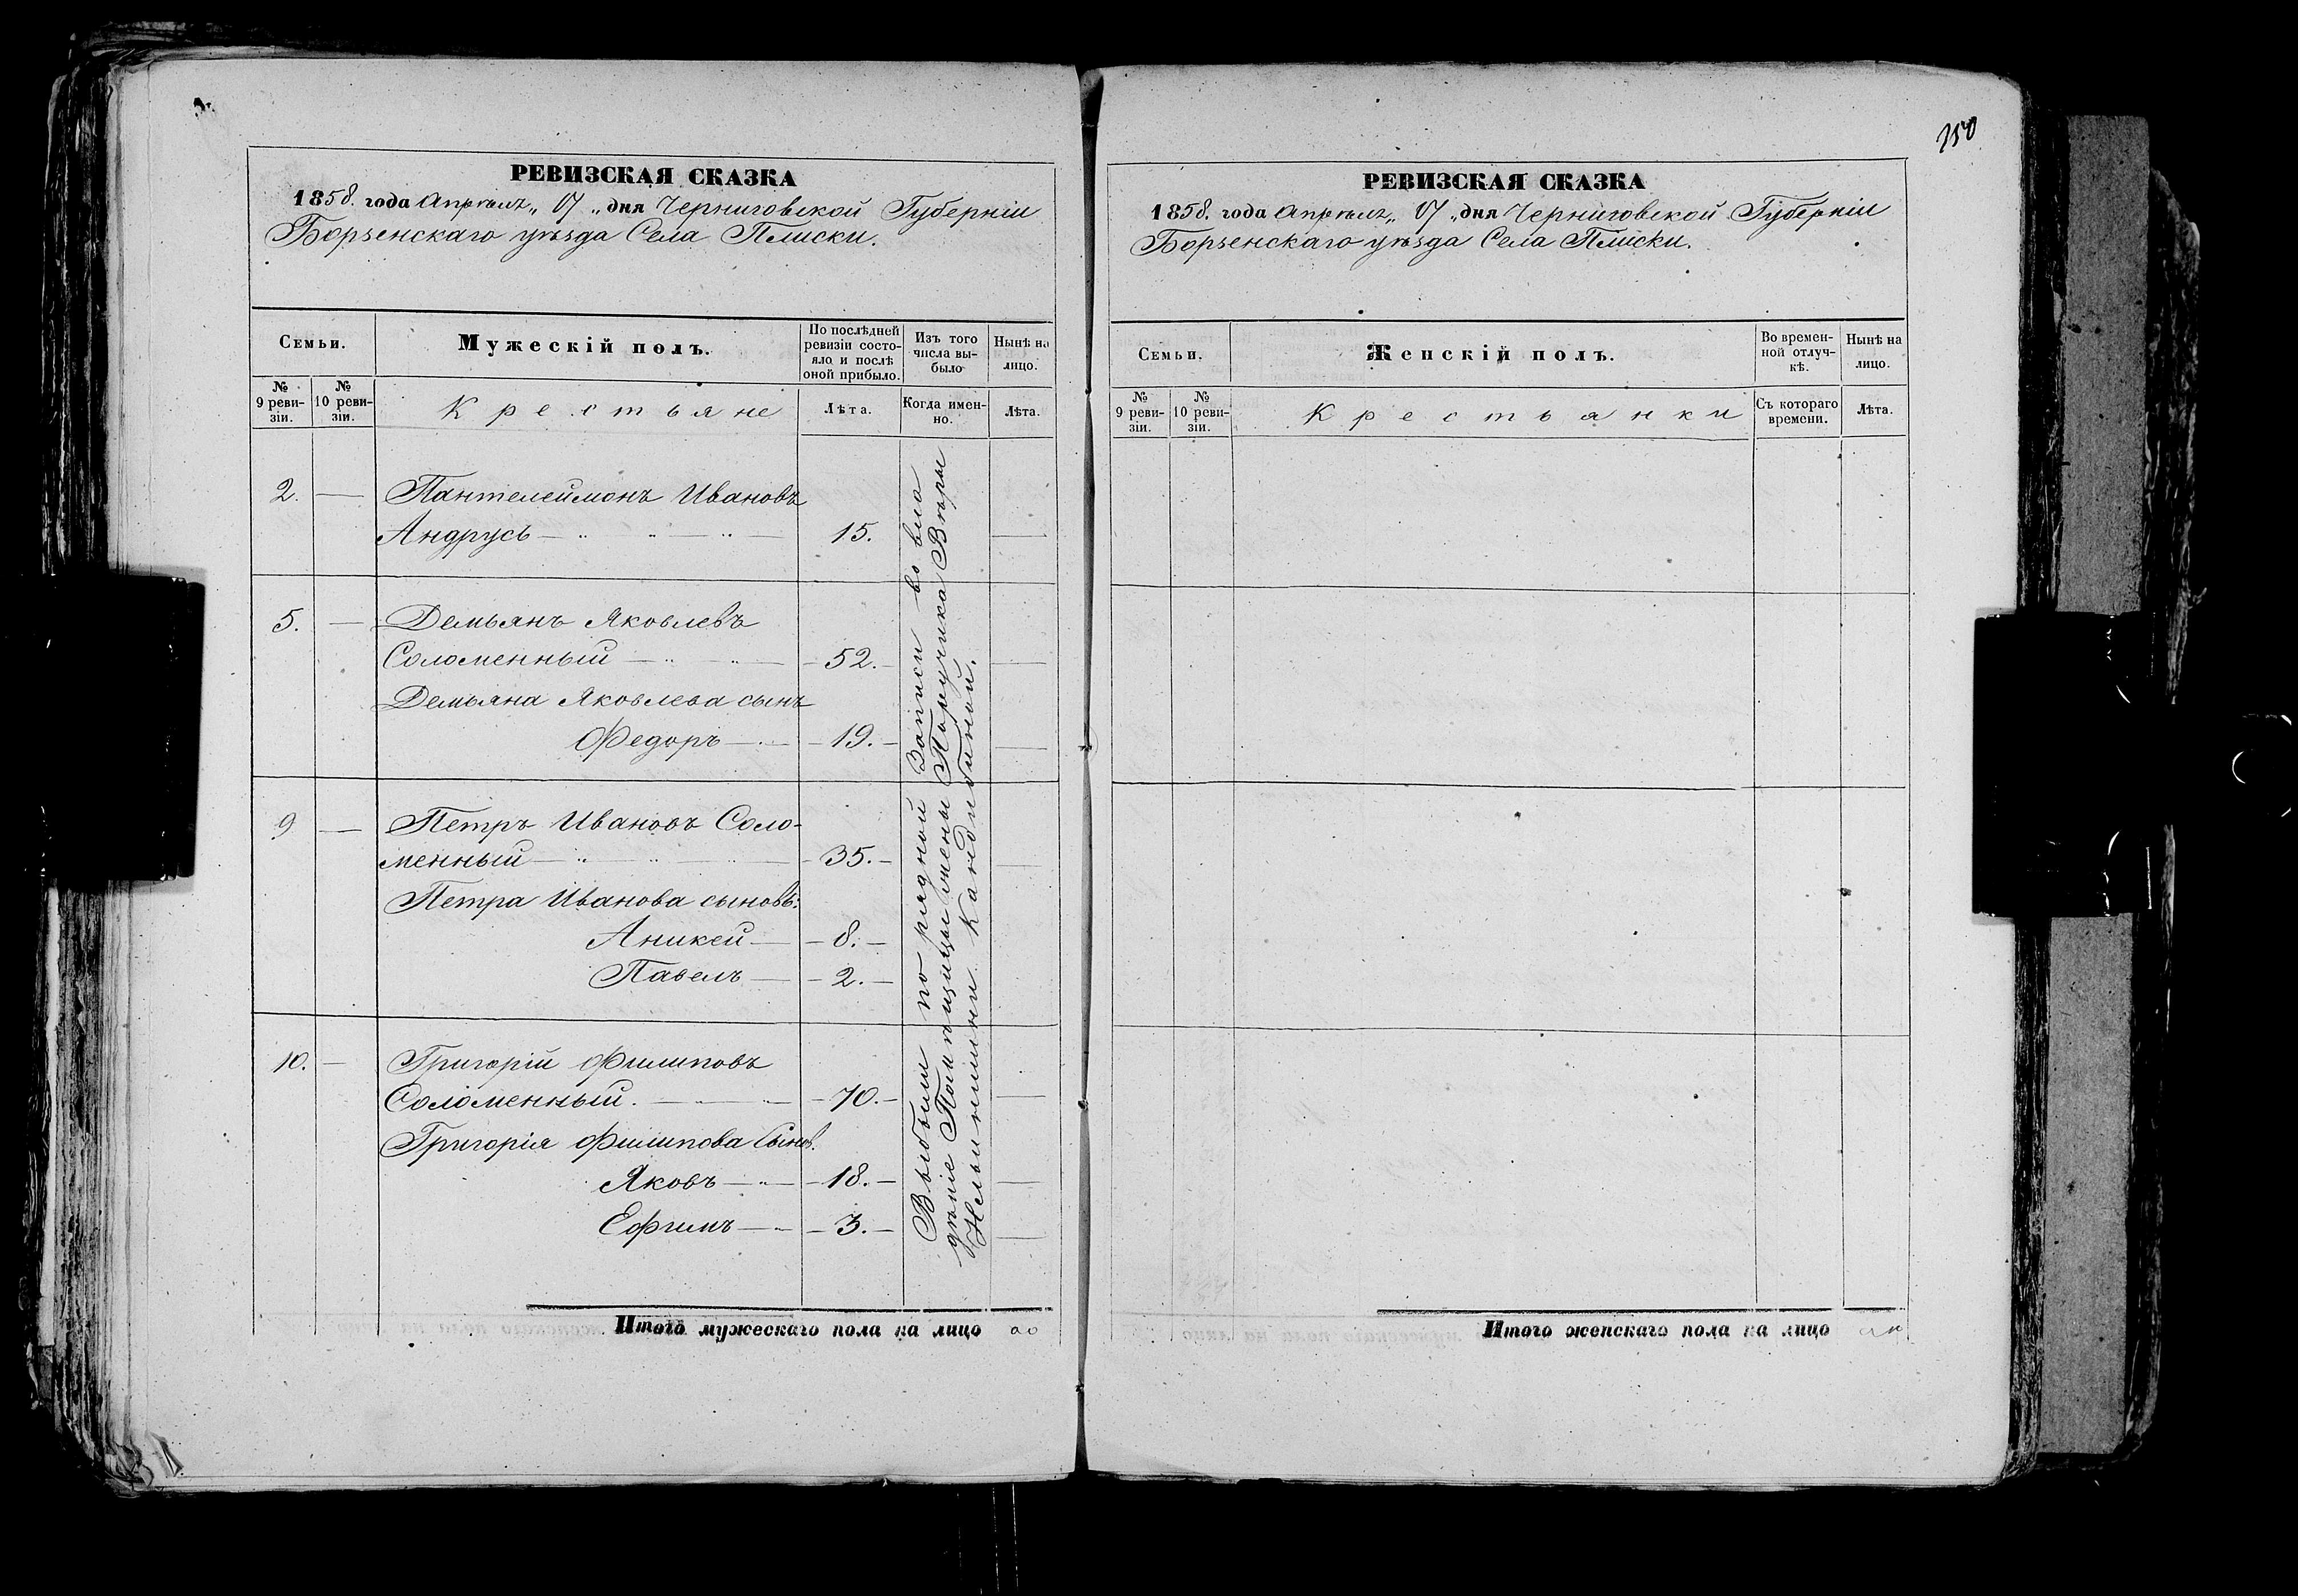 750
РЕВИЗСКАЯ СКАЗКА
1858. года Апрѣля „ 17 „ дня Черниговской Губерніи
Борзенскаго уѣзда Села Плиски.
Семьи.
Мужескій полъ.
По послѣдней ревизіи состояло и послѣ оной прибыло.
Изъ того числа выбыло
Нынѣ на лицо.
№ 9 ревизіи.
№ 10 ревизіи.
Крестьяне
Лѣта.
Когда именно.
Лѣта.
2. — Пантелеймонъ Ивановъ
Андрусь — 15. —
5. — Демьянъ Яковлевъ
Соломенный — 52. —
Демьяна Яковлева сынъ
Федоръ — 19. —
9 — Петръ Ивановъ Соло-
менный — 35. —
Петра Иванова сыновь:
Аникей — 8. —
Павелъ — 2. —
10. — Григорій Филиповъ
Соломенный. — 70. —
Григорія Филипова Сынов.
Яковъ — 18. —
Ефимъ — 3. —
Выбыли по рядной Записи во вла
дѣніе Помѣщицы жены Поручика Вѣры
Ильинишни Кандибиной.
Итого мужескаго пола на лицо
РЕВИЗСКАЯ СКАЗКА
1858. года Апрѣля „ 17 „ дня Черниговской Губерніи
Борзенскаго уѣзда Села Плиски.
Семьи.
Женскій полъ.
Во временной отлучкѣ.
Нынѣ на лицо.
№ 9 ревизіи.
№ 10 ревизіи.
Крестьянки
Съ котораго времени.
Лѣта.
Итого женскаго пола на лицо